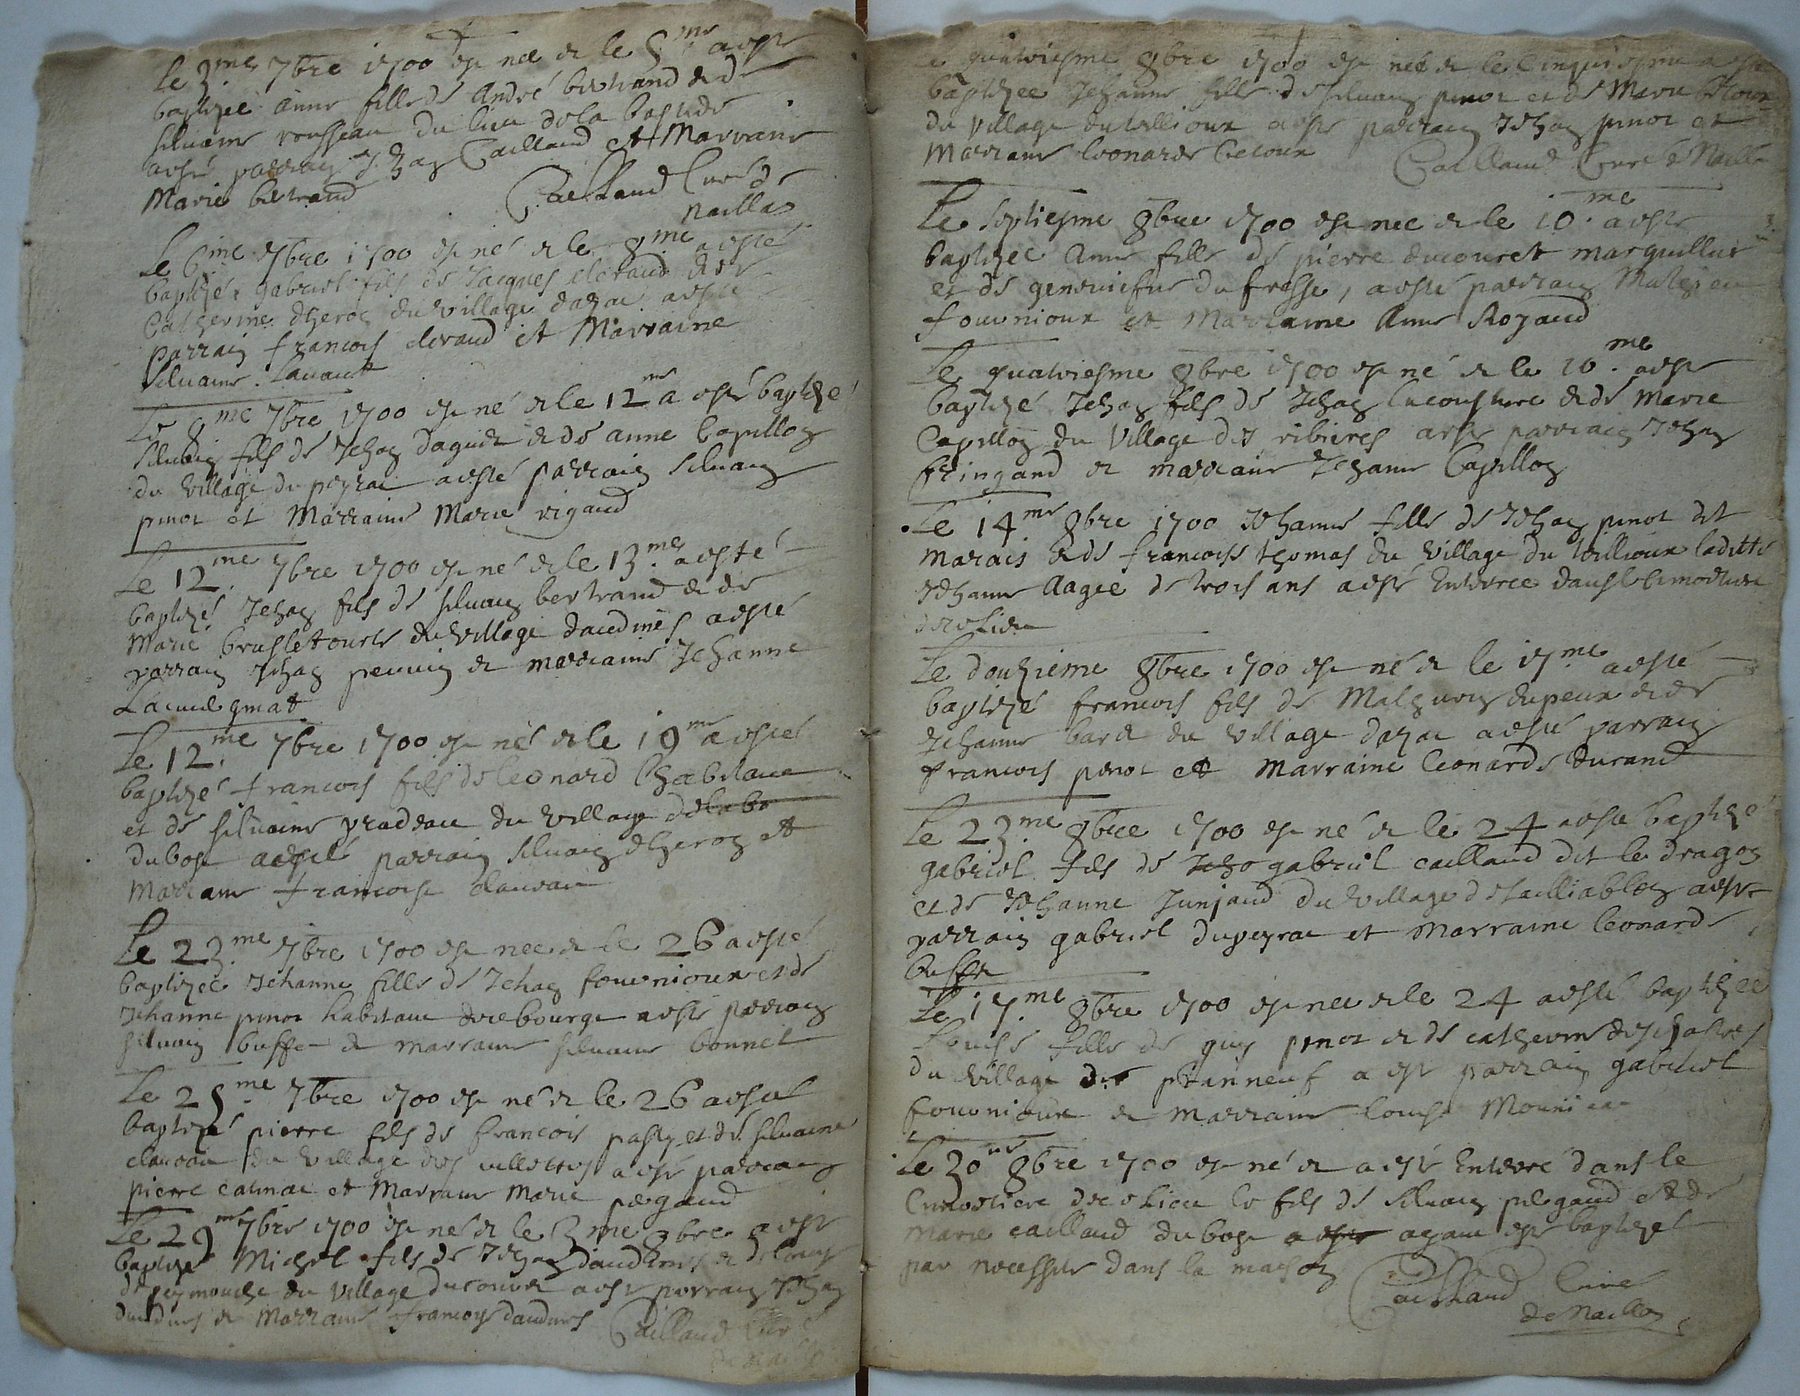 Le 3.me 7bre 1700 est née et le 5me a esté
baptizée anne fille de André bertrand et de
silvaine rousseau du lieu de la bastide
a esté parrain Jehan Caillaud et Marraine
Marie bertrand Caillaud Curé de
naillat
Le 6me 7bre 1700 est né et le 8me a esté
baptizé gabriel fils de Jacques eleraud et de
Catherine dheron du village dazac a esté
parrain francois eleraud et Marraine
silvaine Lavaud
Le 9me 7bre 1700 est né et le 12me a esté baptizé
silvain fils de Jehan daguet et de anne Capillon
du village du peyrat a esté parrain silvain
pinot et Marraine Marie rigaud
Le 12me 7bre 1700 est né et le 13.me a esté
baptizé Jehan fils de silvain bertrand et de
Marie du village a esté
parrain Jehan et marraine Jehanne
Le 12.me 7bre 1700 est né et le 19me a esté
baptizé francois fils de leonard
et de silvaine pradeau du village delabo
dubost a esté parrain silvain dheron et
Marraine francoise claueau
Le 23.me 7bre 1700 est née et le 26 a esté
baptizée Jehanne fille de Jehan fournioux et de
Jehanne pinot habitant de ce bourg a esté parrain
silvain buffe et marraine silvaine bonnet
Le 25me 7bre 1700 est né et le 26 a esté
baptizé pierre fils de francois et de silvaine
claueau du village des villettes a esté parrain
pierre et Marraine Marie pegaud
Le 29me 7bre 1700 est né et le 3me 8bre a esté
baptizé Michel fils de Jehan daudines et de
du village a esté parrain Jehan
daudines et Marraine francoyse daudines Caillaud Curé
Le quatriesme 8bre 1700 est née et le Cinquiesme a esté
baptizée Jehanne fille de silvain pinot et de Marie
du village du tillioux a esté parrain Jehan pinot et
Marraine leonarde Caillaud Curé de Naillat
Le septiesme 8bre 1700 est née et le 10.me a esté
baptizée Anne fille de pierre ducouret marguillier
et de geneviefve dufresse, a esté parrain Mathieu
fournioux et Marraine Anne Royaud
Le quatriesme 8bre 1700 est né et le 10.me a esté
baptizé Jehan fils de Jehan et de Marie
Capillon du village des ribieres a esté parrain Jehan
fringand et marraine Jehanne Capillon
Le 14me 8bre 1700 Jehanne fille de Jehan pinot dit
marais et de francoise thomas du village du tillioux laditte
Jehanne Aagée de trois ans a esté Enterrée dans le cimetiere
de ce lieu
Le douzieme 8bre 1700 est né et le 17me a esté
baptizé francois fils de dupeux et de
Jehanne du village dazac a esté parrain
francois pinot et Marraine leonarde durand
Le 23.me 8bre 1700 est né et le 24 a esté baptizé
gabriel fils de Jeho gabriel caillaud dit le dragon
et de Jehanne Junjaud du village de tailliablon a esté
parrain gabriel dupeyrat et Marraine leonarde
buffe
Le 17.me 8bre 1700 est née et le 24 a esté baptizée
louise fille de guy pinot et de catherine deschastres
du village de planneuf a esté parrain gabriel
fournioux et Marraine louise Mounieau
Le 30me 8bre 1700 est né et a esté Enterré dans le
Cimetiere de ce lieu le fils de silvain pegaud et de
Marie caillaud dubost a esté ayant esté baptizé
par necessité dans la maison Caillaud Curé
de Naillat